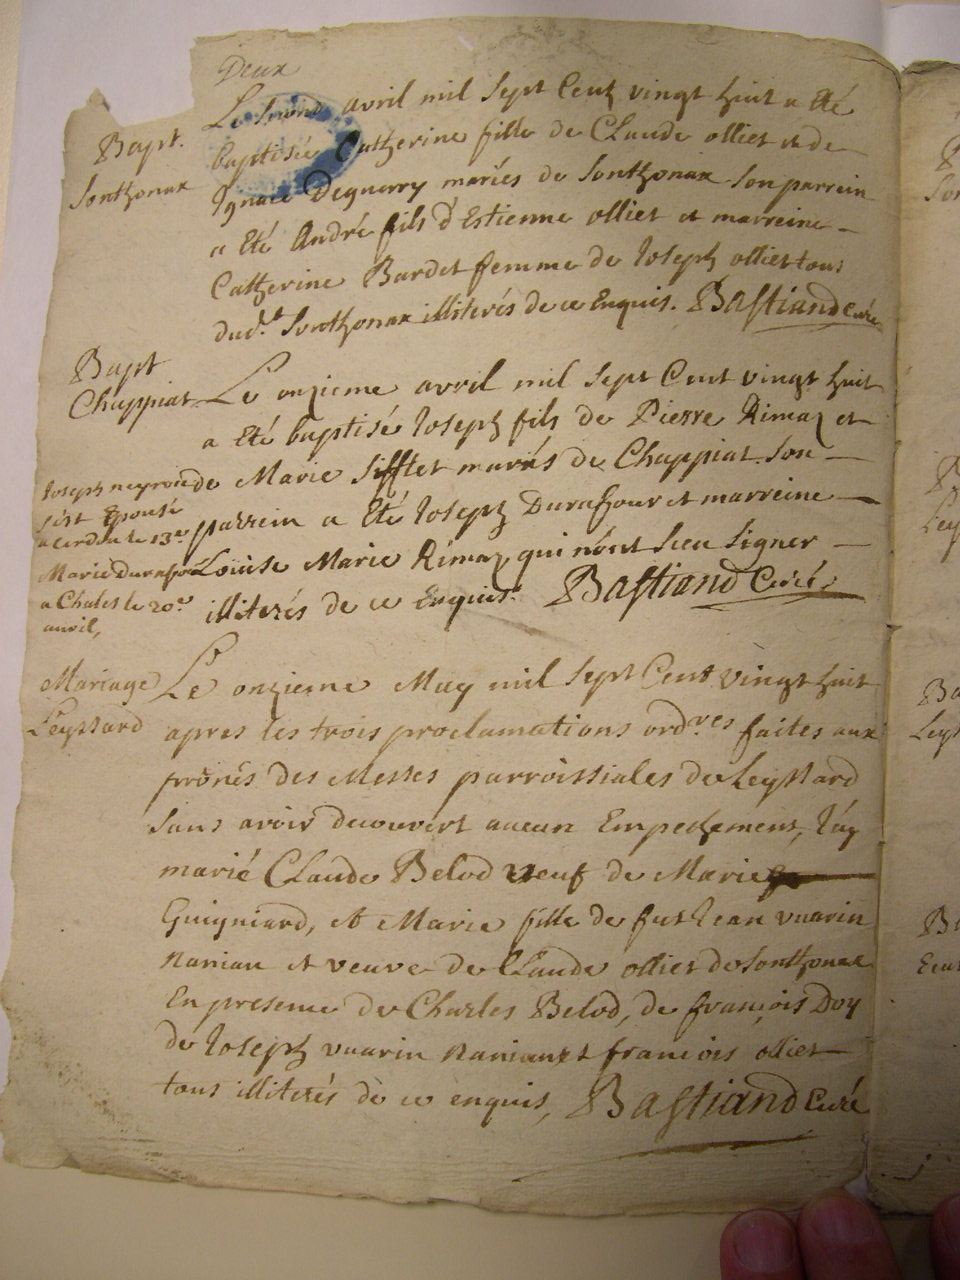 Deux
Bapt.
Sonthonax
Le second avril mil sept Cent vingt huit a Eté
baptisée Catherine fille de Claude ollier et de
Ignace Deguerry mariés de Sonthonax son parrein
a Eté André fils d'Estienne ollier et marreine
Catherine Bardet femme de Joseph ollier tous
dud.t Sonthonax illiterés de ce Enquis. Bastiand Curé
Bapt
Chappiat
Le onzieme avril mil sept Cent vingt huit
a Eté baptisé Joseph fils de Pierre Rimaz et
de Marie Sifflet mariés de Chappiat. Son
parrein a Eté Joseph Duraffour et marreine
Louise Marie Rimaz qui n'ont sceu signer
illiterés de ce Enquis. Bastiand Curé
Joseph neyron
s'est Epousé
a Cerdon le 13.e
Marie Duraffour
a Chales le 20.e
avril,
Mariage
Leyssard
Le onzieme May mil sept Cent vingt huit
apres les trois proclamations ord.res faites aux
prônes des Messes parroissiales de Leyssard
sans avoir decouvert aucun Empechement, J'ay
marié Claude Belod veuf de Marie
Guigniard, et Marie fille de fut Jean vuarin
Naniau et veuve de Claude ollier de Sonthonax
En presence de Charles Belod, de françois Doy
de Joseph vuarin Naniau et françois ollier
tous illiterés de ce enquis, Bastiand Curé